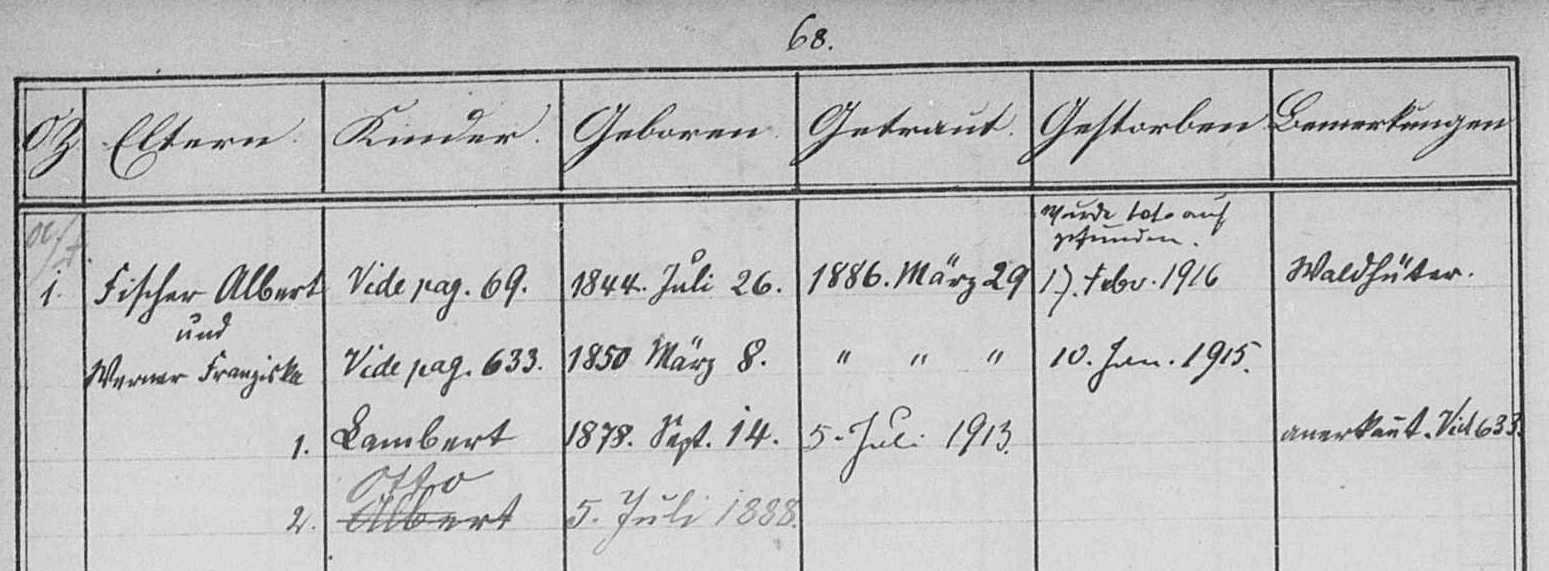 68.
OZ Eltern. Kinder. Geboren. Getraut. Gestorben Bemerkungen
wurde tot auf
gefunden.
1. Fischer Albert Vide pag. 69. 1844. Juli 26. 1886. März 29 17. Febr. 1916 Waldhüter.
und
Werner Franziska Vide pag. 633. 1850 März 8. " " " 10. Jan. 1915.
1. Lambert 1878. Sept. 14. 5. Juli 1913. anerkannt. Vid 633.
Otto
2. Albert 5. Juli 1888.